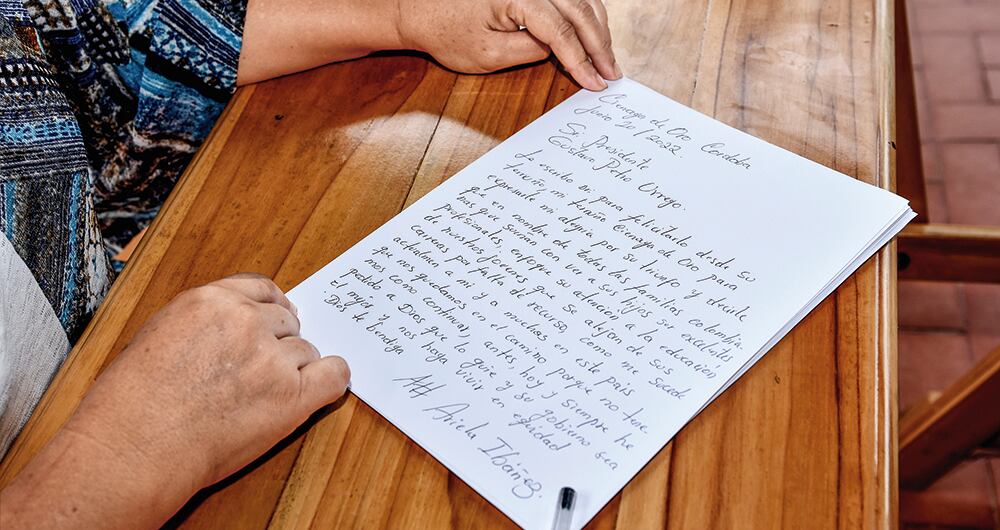 Cienaga de Oro Cordoba
Junio 21/2022.
Sr. Presidente
Gustavo Petro Urrego.
Le escribo para felicitarlo desde su
terruño, mi tierra Cienaga de Oro para
expresarle mi alegria por su triunfo y decirle
que en nombre de todas las familias colombia-
nas que sueñan con ver a sus hijos ser excelentes
profesionales, enfoque su atención a la educación
de nuestros jovenes que se alejan de sus
carreras por falta de recurso, como me sucede
actualmente a mi y a muchas en este pais
que nos quedamos en el camino porque no tene-
mos como continuar, antes, hoy y siempre he
pedido a Dios que lo guie y su gobierno sea
El mejor y nos haga vivir en equidad
Dios te bendiga
Att Ariela Ibáñez.